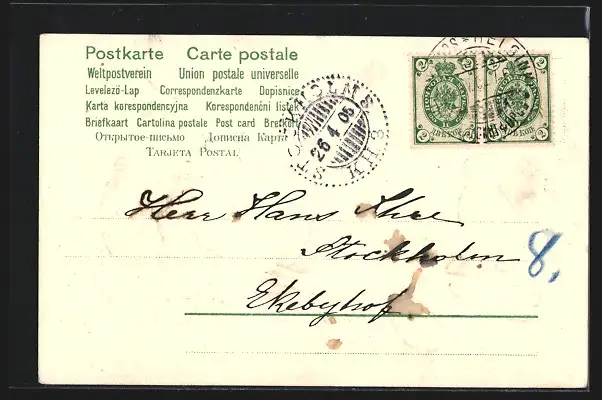 Postkarte Carte postale
Weltpostverein Union postale universelle
Levelező-Lap Correspondenzkarte Dopisnice
Karta korespondencyjna Korespondenčni listek
Briefkaart Cartolina postale Post card Brefkort
Открытое-письмо Дописна Карта
Tarjeta Postal
26.4.06
2 2 2 2
Herr Hans
Stockholm
Ekebyhof
8,